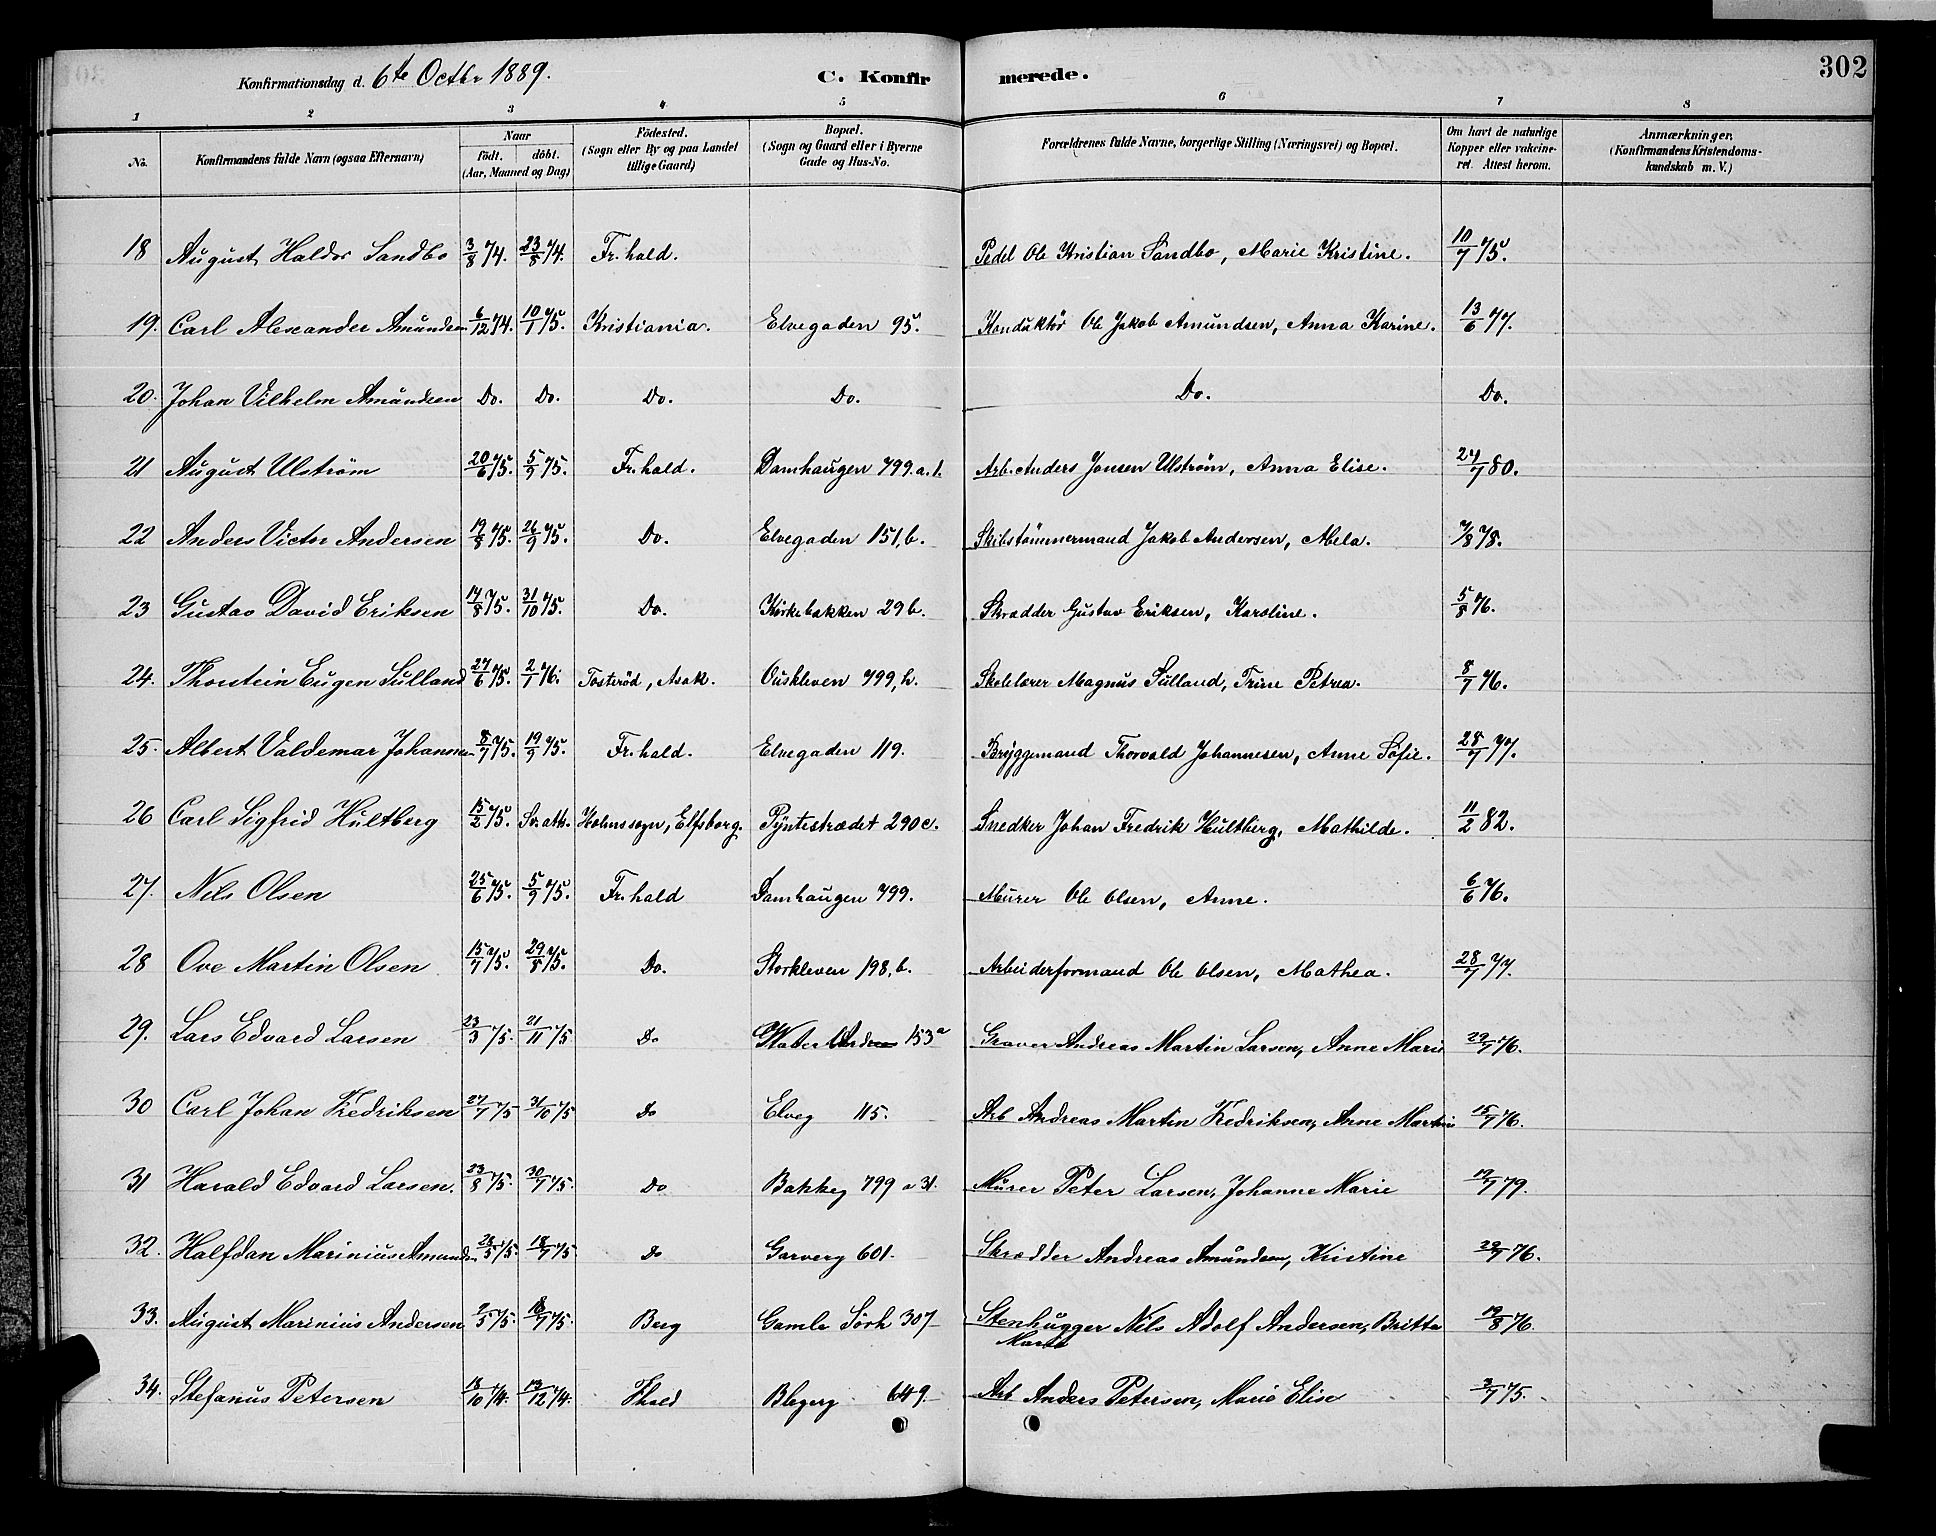 302
Konfirmationsdag d. 6te Octbr 1889. C. Konfir merede.
1 2 3 4 5 6 7 8
No. Konfirmandens fulde Navn (ogsaa Efternavn) Naar födt. döbt. (Aar, Maaned og Dag) Födested. (Sogn eller By og paa Landet tillige Gaard) Bopæl. (Sogn og Gaard eller i Byerne Gade og Hus-No. Forældrenes fulde Navne, borgerlige Stilling (Næringsvei) og Bopæl. Om havt de naturlige Kopper eller vakcineret. Attest herom. Anmærkninger. (Konfirmandens Kristendomskundskab m. V.)
18 August Haldor Sandbo 3/8 74. 23/8 74. Fr.hald. Pedel Ole Kristian Sandbo, Marie Kristine. 10/7 75.
19. Carl Alexander Amundsen 6/12 74. 10/1 75. Kristiania. Elvegaden 95. Konduktör Ole Jakob Amundsen, Anna Karine. 13/6 77.
20. Johan Vilhelm Amundsen Do. Do. Do. Do. Do. Do.
21 August Ulström 20/6 75. 5/9 75. Fr.hald. Damhaugen 799.a.1. Arb. Anders Jonsen Ulström, Anna Elise. 27/7 80.
22 Anders Victor Andersen 19/8 75. 26/9 75. Do. Elvegaden 151,b. Skibstömmermand Jakob Andersen, Mela. 7/8 78.
23 Gustav David Eriksen 17/8 75. 31/10 75. Do. Kirkebakken 29 b. Skrædder Gustav Eriksen, Karoline. 5/8 76.
24. Thorstein Eugen Sulland 27/6 75. 2/1 76. Tosteröd, Asak. Ouskleven 799,h. Skolelærer Magnus Sulland, Trine Petrea. 8/7 76.
25. Albert Valdemar Johannesen 8/7 75. 19/9 75. Fr.hald. Elvegaden 119. Bryggemand Thorvald Johannesen, Anne Sofie. 28/7 77.
26 Carl Sigfrid Hultberg 15/2 75. Sv. att. Holms sogn, Elfsborg. Pyntestrædet 290 c. Snedker Johan Fredrik Hultberg, Mathilde. 11/2 82.
27. Nils Olsen 25/6 75. 5/9 75. Fr.hald Damhaugen 799. Murer Ole Olsen, Anne. 6/6 76.
28 Ove Martin Olsen 15/7 75. 29/8 75. Do. Storkleven 198,b. Arbeiderformand Ole Olsen, Mathea. 28/7 77.
29. Lars Edvard Larsen 23/3 75. 21/11 75 Do 153 a Graver Andreas Martin Larsen, Anne Marie 29/7 76.
30 Carl Johan Fredriksen 27/7 75 31/10 75 Do Elveg 115. Arb Andreas Martin Fredriksen, Anne Martine 15/7 76.
31 Harald Edvard Larsen. 23/8 75. 30/7 75. Do Bakkeg 799 a 31. Murer Peter Larsen, Johanne Marie 19/7 79.
32. Halfdan Marinius Amundsen 28/5 75. 18/7 75 Do Garverg 601. Skrædder Andreas Amundsen, Kristine 29/7 76.
33. August Marinius Andersen 2/5 75. 18/7 75. Berg Gamle Sörh 307 Stenhugger Nils Adolf Andersen, Britta 19/8 76.
Marie
34. Stefanus Petersen 18/10 74. 13/12 74. Fhald Blegerg 649. Arb Anders Petersen, Marie Elise 3/7 75.